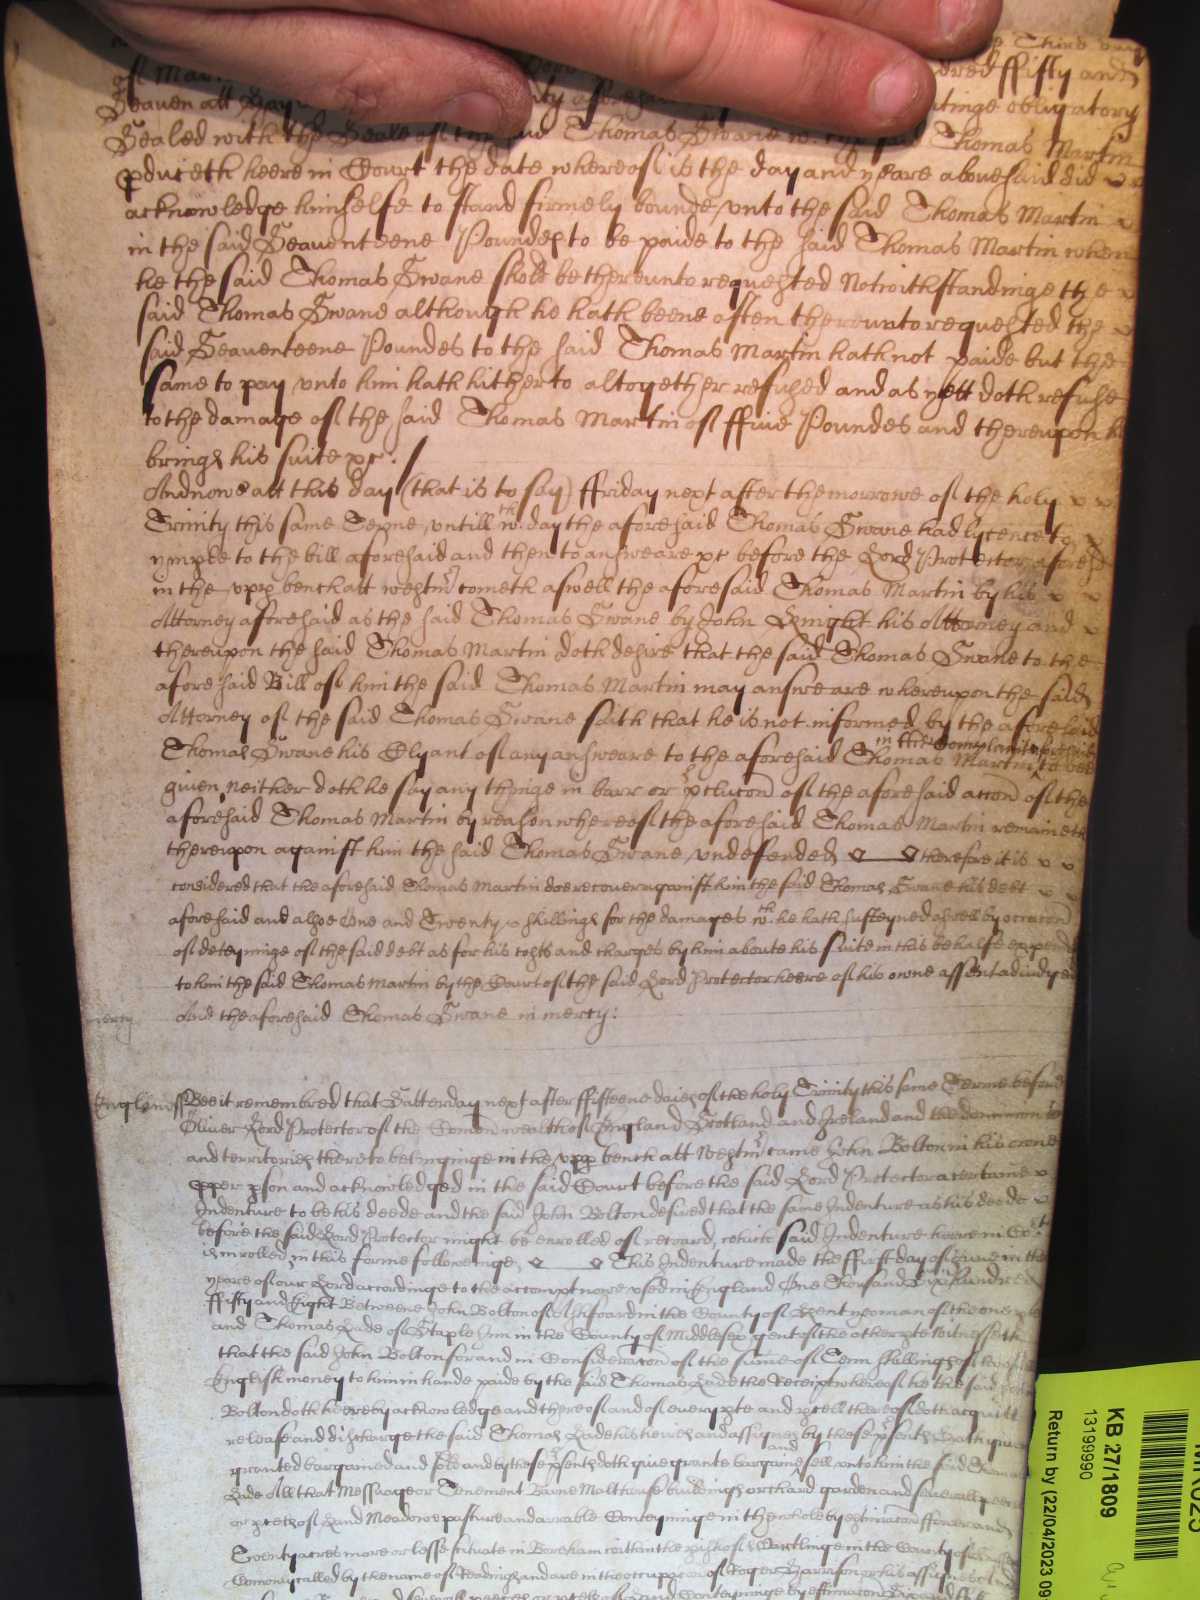 Third day
of Mar dred ffifty and
Seaven att itinge obligatory
Sealed with the Seale of the said Thomas Swane wch the said Thomas Martin
pduceth heere in Court the date whereof is the day and yeare abovesaid did
acknowledge himselfe to stand firmely bounde unto the said Thomas Martin
in the said Seaventeene Poundes to be paide to the said Thomas Martin when
he the said Thomas Swane shold be thereunto requested Notwithstandinge the
said Thomas Swane although he hath beene often thereunto requested the
said Seaventeene Poundes to the said Thomas Martin hath not paide but the
same to pay unto him hath hitherto altogether refused and as yett doth refuse
to the damage of the said Thomas Martin of ffive Poundes and thereupon h
bringes his suite &c.
And nowe att this day (that is to say) ffriday next after the morrowe of the holy
Trinity this same Terme untill wch day the aforesaid Thomas Swane had lycence to
ymple to the bill aforesaid and then to answeare &c before the Lord Protector afores
in the upp bench att westmr cometh aswell the aforesaid Thomas Martin by his
Attorney aforesaid as the said Thomas Swane by John Knight his Attorney and
thereupon the said Thomas Martin doth desire that the said Thomas Swane to the
aforesaid Bill of him the said Thomas Martin may answeare whereupon the said
Attorney of the said Thomas Swane saith that he is not informed by the aforesaid
in the Complaint aforesaid
Thomas Swane his Clyant of any answeare to the aforesaid Thomas Martin to bee
given neither doth he say any thinge in barr or pclucon of the aforesaid accon of the
aforesaid Thomas Martin by reason whereof the aforesaid Thomas Martin remaineth
thereupon against him the said Thomas Swane undefended therefore it is
considered that the aforesaid Thomas Martin doe recover against him the said Thomas Swane his debt
aforesaid and alsoe One and Twenty shillings for the damages wch he hath susteyned aswell by occacon
of deteyninge of the said debt as for his costs and charges by him aboute his suite in this behalfe expend
to him the said Thomas Martin by the Court of the said Lord Protector heere of his owne assent adiudged
mercy And the aforesaid Thomas Swane in mercy:
England ss Bee it remembred that Satterday next after fifteene daies of the holy Trinity this same Terme before
Oliver Lord Protector of the Comon wealth of England Scotland and Ireland and the dominions
and territories thereto belonginge in the upp bench att Westmr came John Bolton in his owne
pper pson and acknowledged in the said Court before the said Lord Protector a certaine
Indenture to be his deede and the said John Bolton desired that the same Indenture as his deede
before the said Lord Protector might be enrolled of record, which said Indenture heere in Cort
is inrolled in this forme followeinge This Indenture made the ffirst day of June in the
yeare of our Lord accordinge to the accompt now used in England One Thousand Six hundred
ffifty and Eight Betweene John Bolton of Ashford in the County of Kent yeoman of the one pte
and Thomas Lade of Staple Inn in the County of Middlesex gent of the other pte Witnesseth
that the said John Bolton for and in Consideracon of the sume of Tenn shillings of
English money to him in hande paide by the said Thomas Lade the Receipt whereof he the said
Bolton doth heereby acknowledge and thereof and of every pte and pcell thereof doth acquitt
release and discharge the said Thomas Lade his heires and assignes by these psents hath given
granted bargained and sold and by these psents doth give grante bargaine and sell unto him the said Thomas
Lade All that Messuage or Tenement Barne Malthouse buildings orchard garden and severall peeces
or pcells of Land Meadowe pasture and arrable Conteyninge in the whole by estimacon ffower and
Twenty acres more or lesse scituate in Boreham within the pish of Wartlinge in the County of Sussex
Comonly called by the name of and are in the occupacon of Roger Harrison or his assignes
KB 27/1809
13199990
Return by (22/04/2023 09